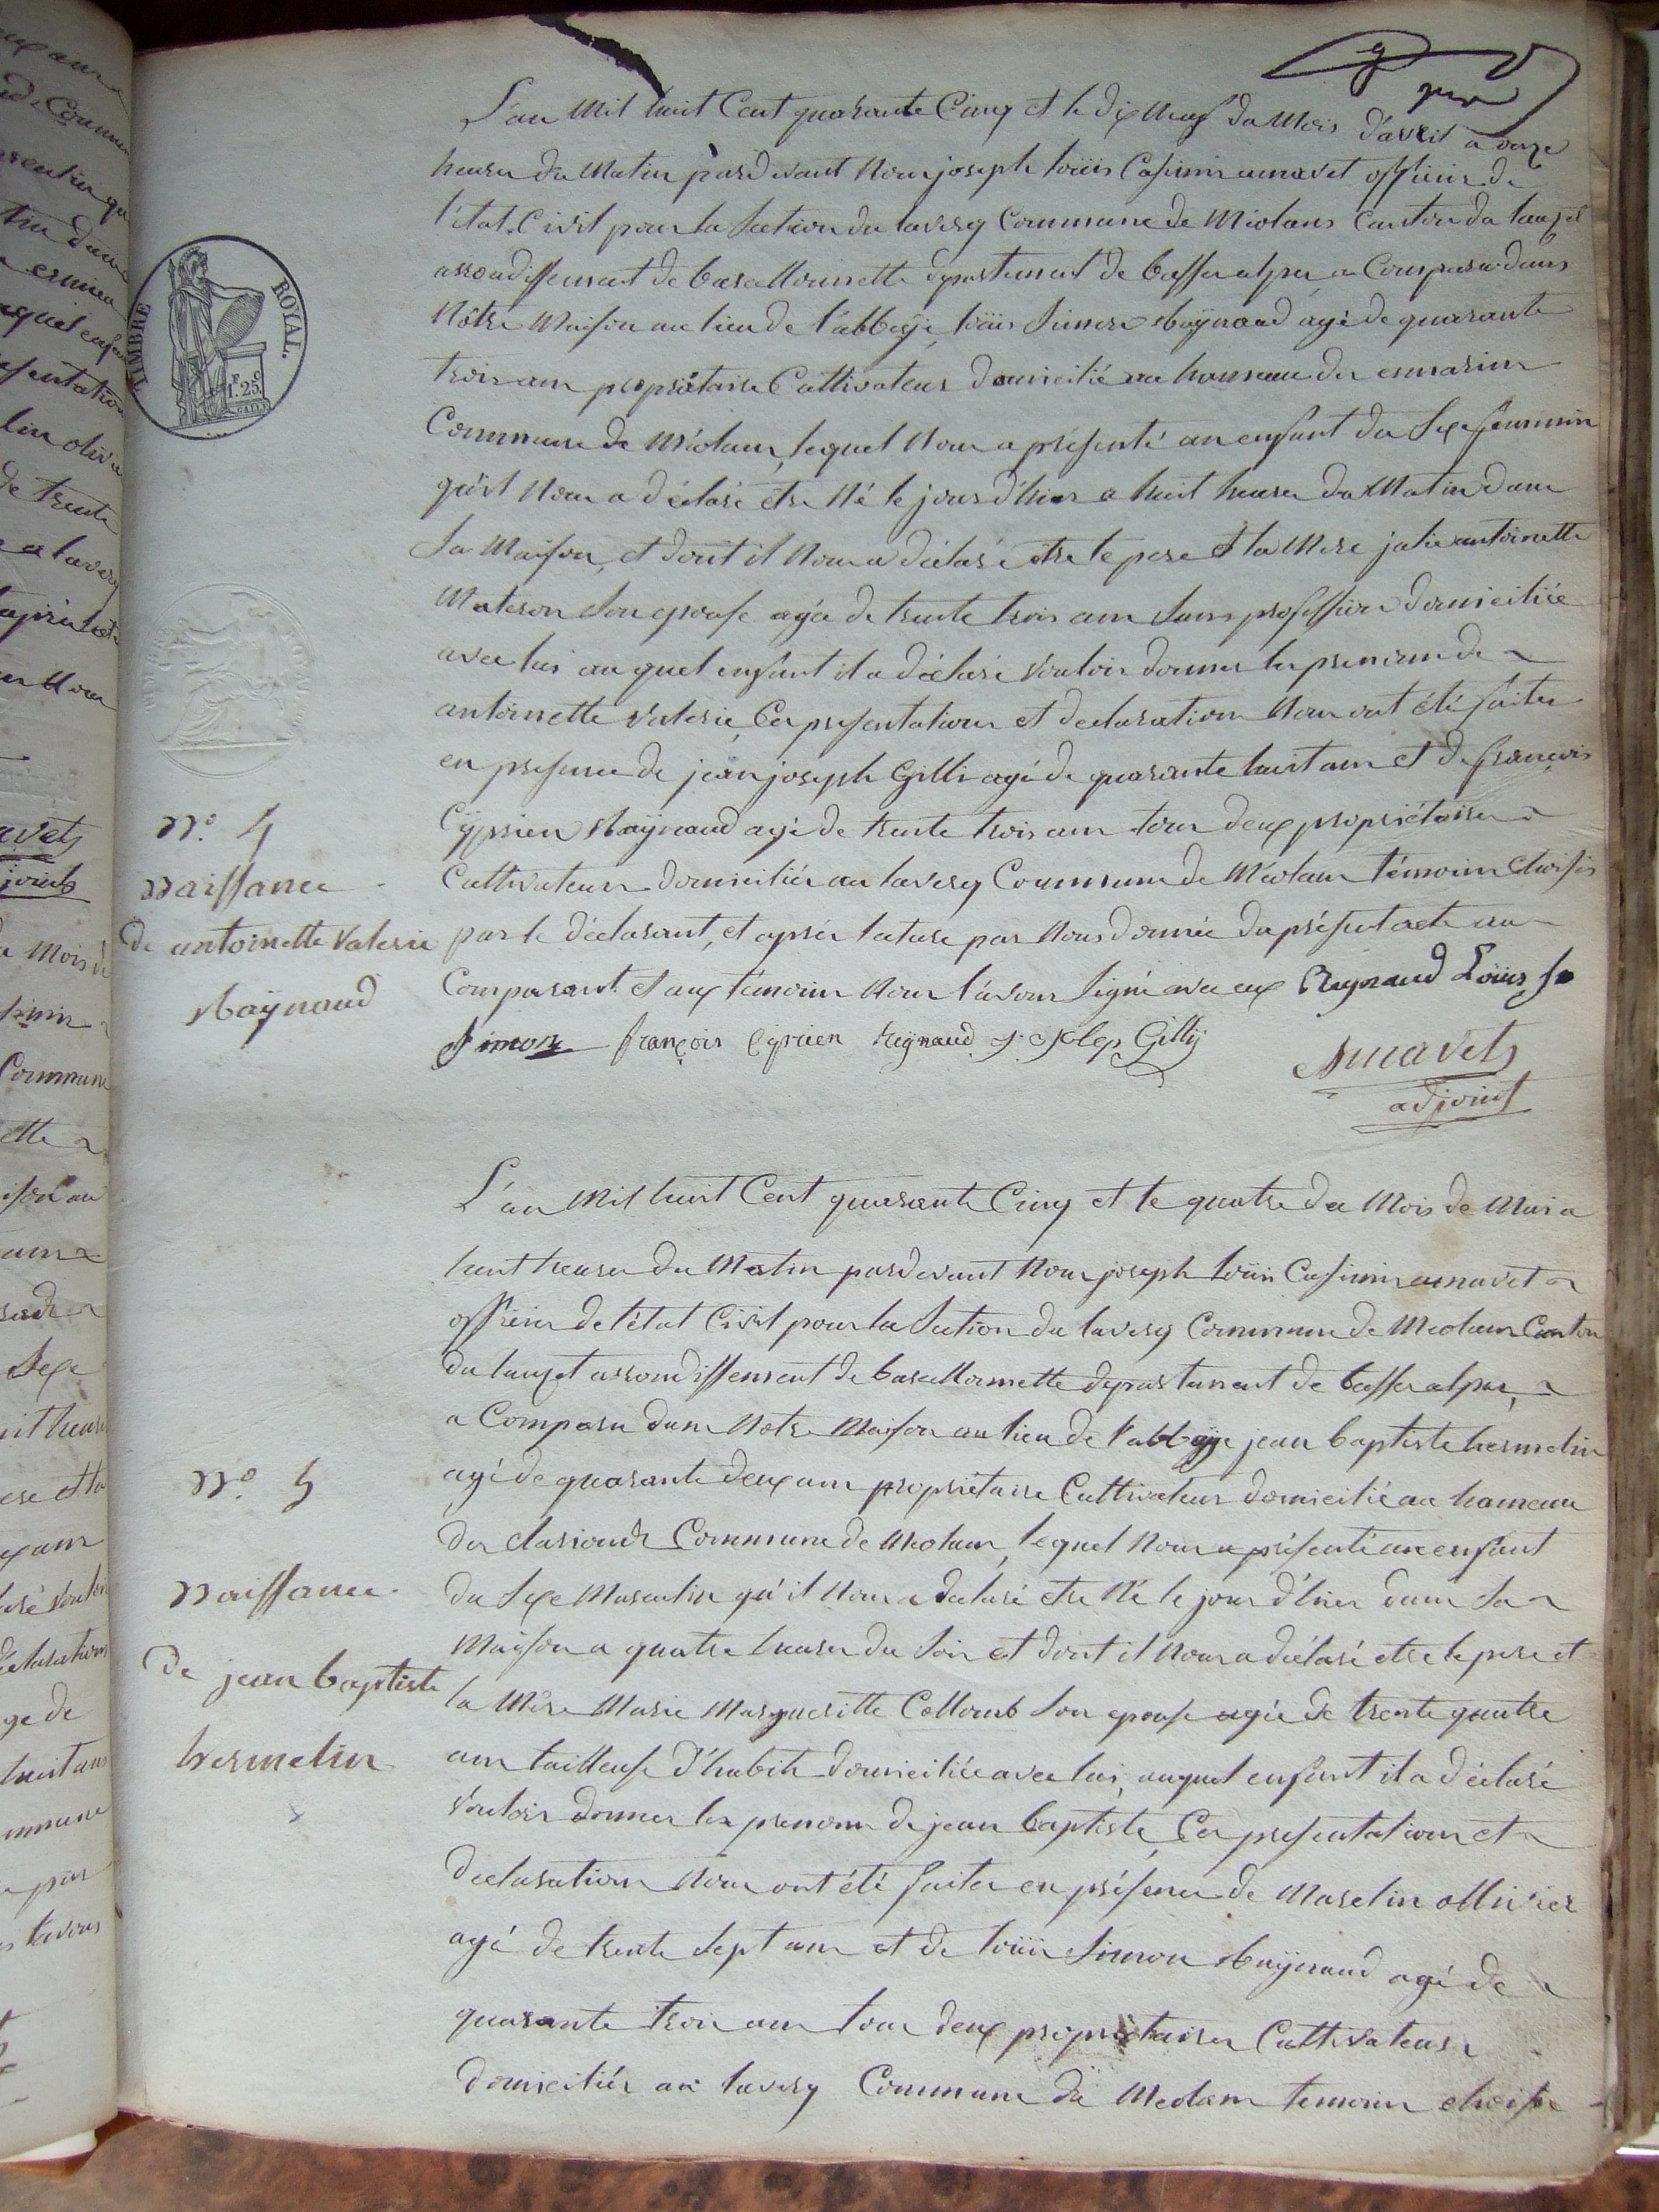 L'an mil huit Cent quarante Cinq et le dix neuf du mois d'avril a onze
heures du matin pardevant nous joseph loüis Casimir arnavet officier de
l'état Civil pour la section du laverq Commune de Méolans Canton du lauzet
arrondissement de barcellonnette departement de basses alpes, a Comparu dans
nôtre maison au lieu de l'abbaÿe, loüis simon Raÿnaud agé de quarante
trois ans propriétaire Cultivateur domicilié au hameau des
Commune de Méolans, lequel nous a présenté un enfant du sexe feminin
qu'il nous a déclaré etre né le jour d'hier a huit heures du matin dans
sa maison, et dont il nous a déclaré être le pere et la mere julie antoinette
Materon son epouse agée de trente trois ans sans profession domiciliée
avec lui auquel enfant il a déclaré vouloir donner les prenoms de
antoinette valerie, Ces presentations et declaration nous ont été faites
en presence de jean joseph Gilli agé de quarante huit ans et de françois
Cÿprien Raÿnaud agé de trente trois ans tous deux propriétaires
Cultivateurs domiciliés au laverq Commune de Méolans témoins choisis
par le déclarant, et aprés lecture par nous donnée du présent acte au
Comparant et aux témoins nous l'avons signé avec eux Reynaud Loüis
Simon françois Cyprien Reynaud J. Gilly
Arnavet
adjoint
TIMBRE ROYAL.
1f. 25c
N.º 4
Naissance
de antoinette Valerie
Raÿnaud
L'an mil huit Cent quarante Cinq et le quatre du mois de Mai a
huit heures du matin pardevant nous joseph loüis Casimir arnavet
officier de l'état Civil pour la section du laverq Commune de Meolans Canton
du lauzet arrondissement de barcellonnette departement de basses alpes,
a Comparu dans notre maison au lieu de l'abbaÿe jean baptiste hermelin
agé de quarante deux ans propriétaire Cultivateur domicilié au hameau
des Commune de Meolans, lequel nous a présenté un enfant
du sexe Masculin qu'il nous a declaré etre né le jour d'hier dans sa
maison a quatre heures du soir et dont il nous a déclaré etre le pere et
la mère Marie Margueritte Collomb son epouse agée de trente quatre
ans tailleuse d'habits domiciliée avec lui, auquel enfant il a déclaré
vouloir donner les prenoms de jean baptiste, Ces presentations et
declaration nous ont été faites en présence de Marcelin ollivier
agé de trente sept ans et de loüis simon Raÿnaud agé de
quarante trois ans tous deux propriétaires Cultivateurs
domiciliés au laverq Commune de Meolans temoins choisis
N.º 5
Naissance
de jean baptiste
hermelin